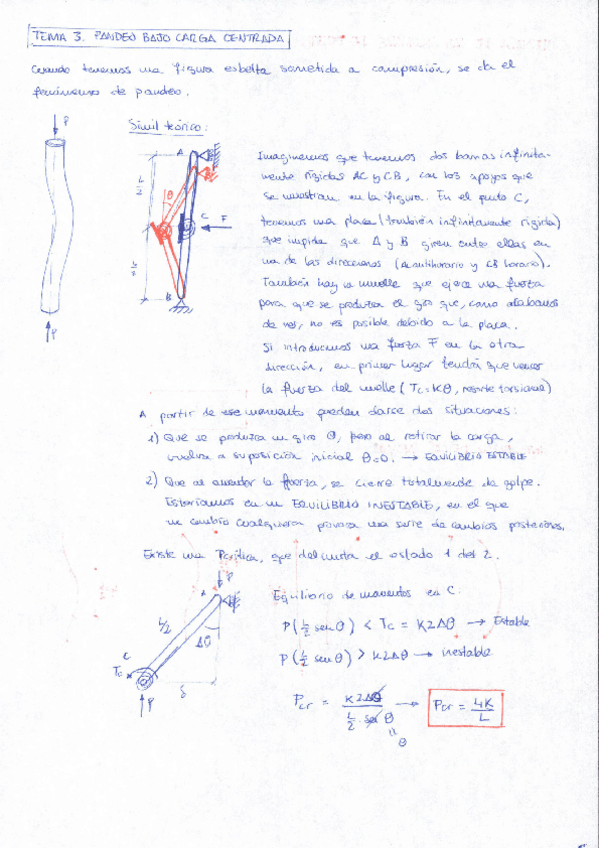 TEMA 3. PANDEO BAJO CARGA CENTRADA
Cuando tenemos una figura esbelta sometida a compresión, se da el
fenómeno de pandeo.
Símil teórico:
P
P
A
L/2
L/2
θ
C
F
B
Imaginemos que tenemos dos barras infinita-
mente rígidas AC y CB, con los apoyos que
se muestran en la figura. En el punto C,
tenemos una placa (también infinitamente rígida)
que impida que A y B giren entre ellas en
una de las direcciones (AC antihorario y CB horario).
También hay un muelle que ejerce una fuerza
para que se produzca el giro que, como acabamos
de ver, no es posible debido a la placa.
Si introducimos una fuerza F en la otra
dirección, en primer lugar tendrá que vencer
la fuerza del muelle (Tc = Kθ, resorte torsional)
A partir de ese momento pueden darse dos situaciones:
1) Que se produzca un giro θ, pero al retirar la carga,
vuelva a su posición inicial θ=0. → EQUILIBRIO ESTABLE
2) Que al aumentar la fuerza, se cierre totalmente de golpe.
Estaríamos en un EQUILIBRIO INESTABLE, en el que
un cambio cualquiera provoca una serie de cambios posteriores.
Existe una Pcrítica, que delimita el estado 1 del 2.
P
A
L/2
Δθ
C
Tc
P
δ
Equilibrio de momentos en C:
P(L/2 sen θ) < Tc = K2Δθ → Estable
P(L/2 sen θ) > K2Δθ → inestable
Pcr = K2Δθ / (L/2 · sen θ) → Pcr = 4K/L
θ